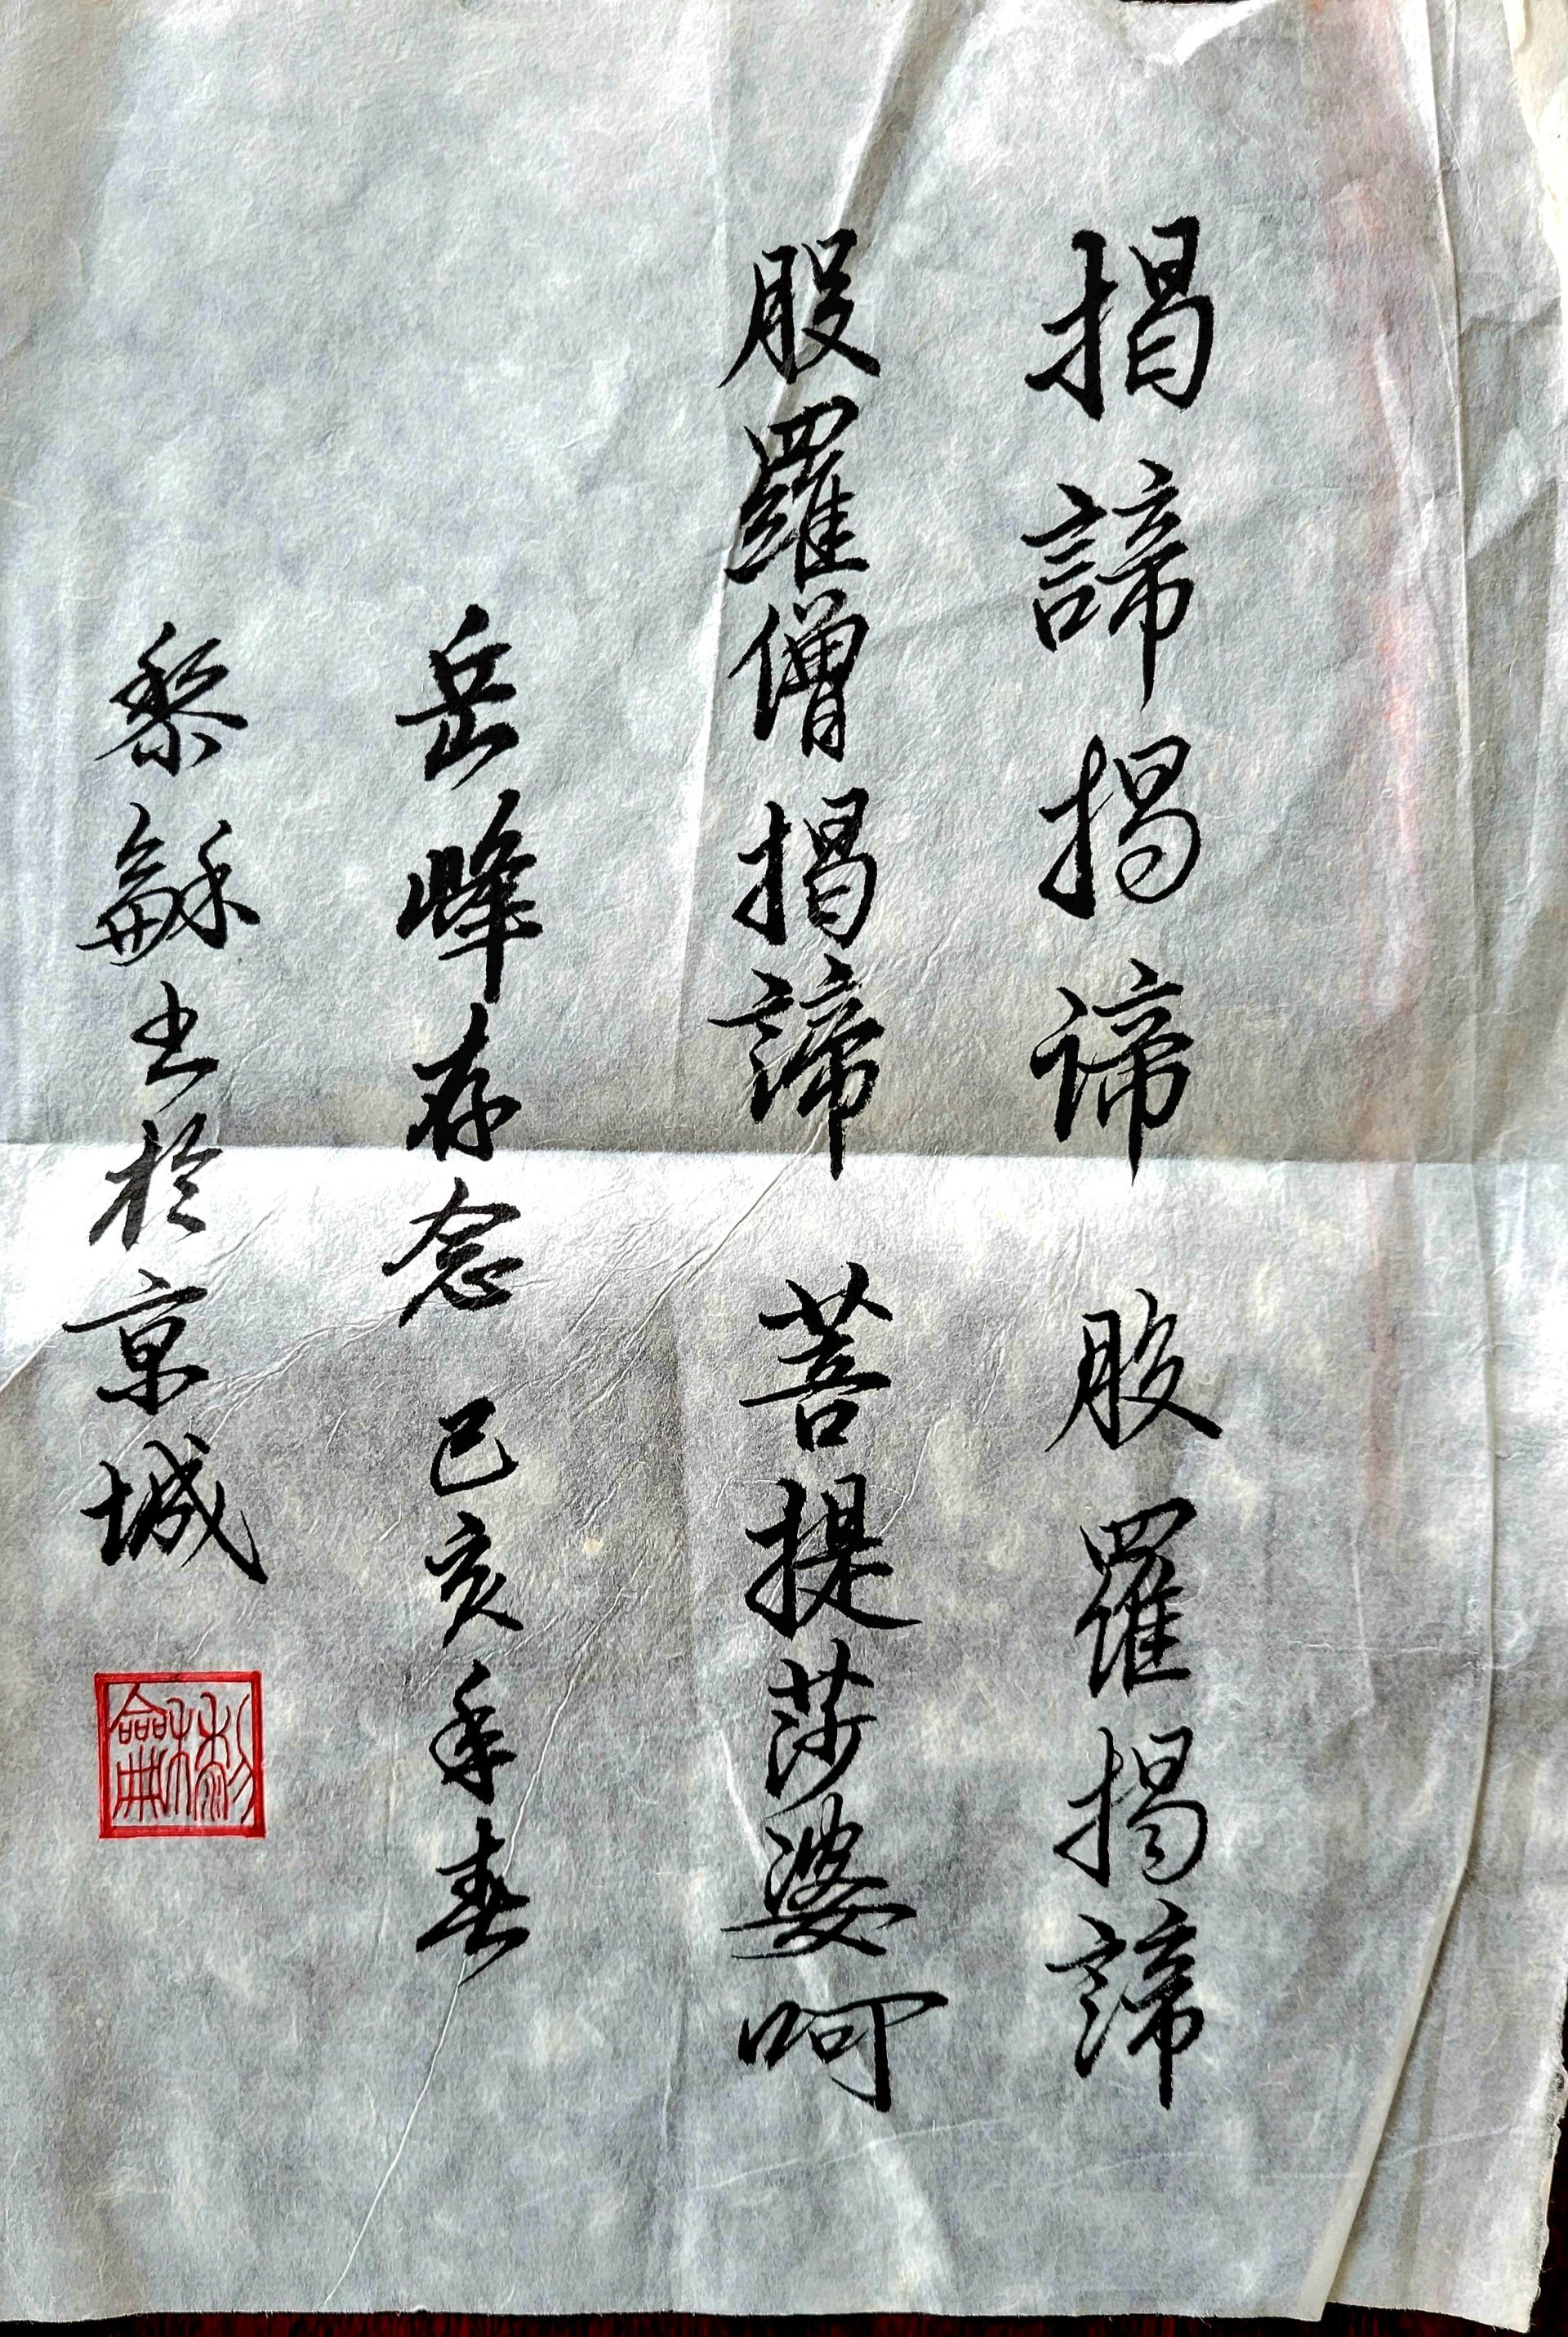 揭諦揭諦 股羅揭諦
股羅僧揭諦 菩提莎婆呵
岳峰存念 己亥年春
黎龢书於京城
黎龢